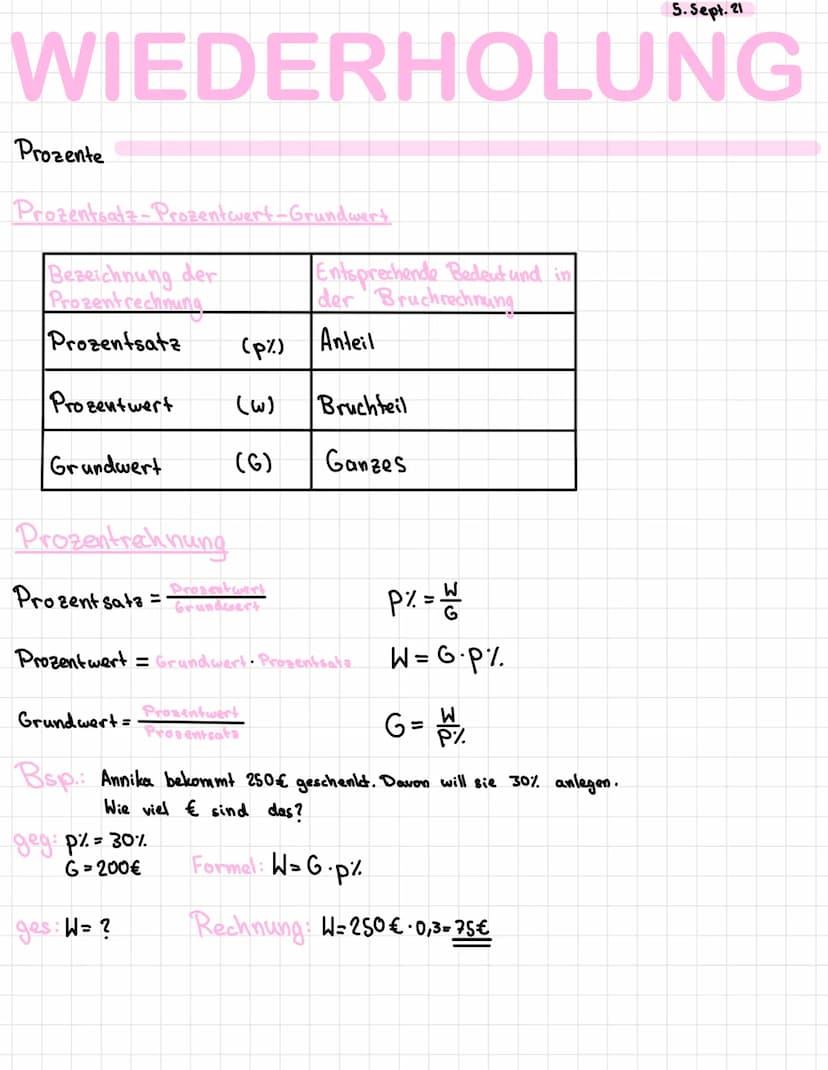 5. Sept. 21
WIEDERHOLUNG
Prozente
Prozentsatz-Prozentwert-Grundwert
Bezeichnung der
Prozentrechnung
Entsprechende Bedeutund in
der Bruchrechnung
Prozentsatz (p%) Anteil
Prozentwert (W) Bruchteil
Grundwert (G) Ganzes
Prozentrechnung
Prozentsatz = Prozentwert/Grundwert p% = W/G
Prozentwert = Grundwert · Prozentsatz W = G · p%.
Grundwert = Prozentwert/Prozentsatz G = W/p%
Bsp.: Annika bekommt 250€ geschenkt. Davon will sie 30% anlegen.
Wie viel € sind das?
geg: p% = 30%
G = 200€ Formel: W = G · p%
ges: W = ? Rechnung: W = 250€ · 0,3 = 75€